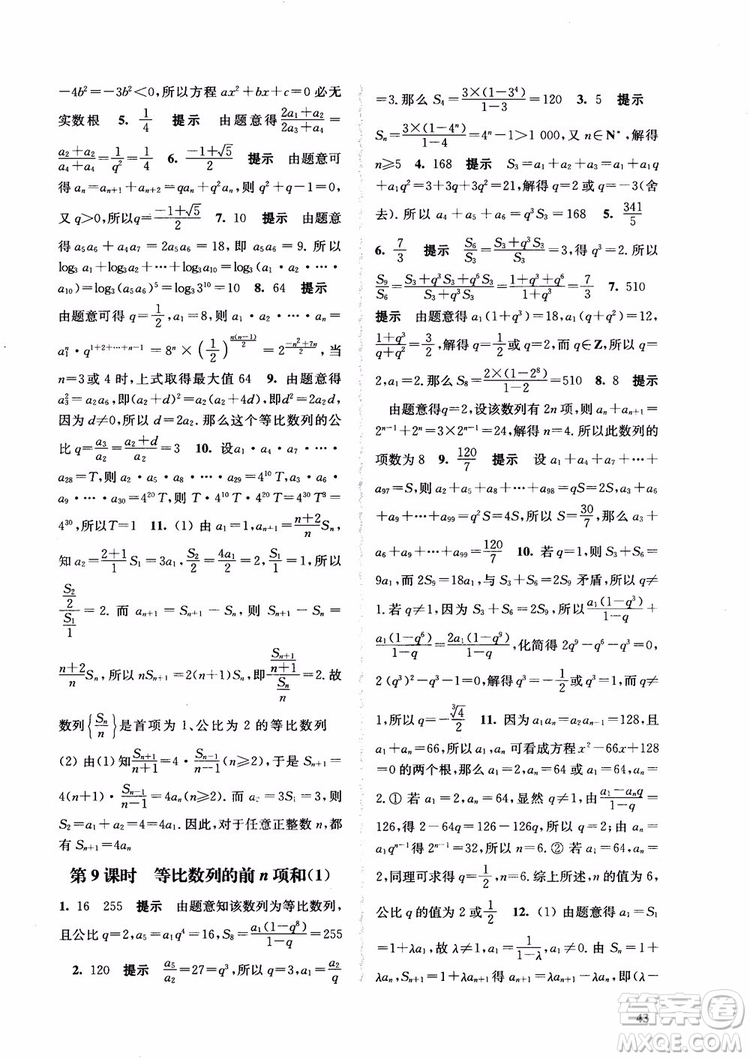 −4b²=−3b²<0,所以方程 ax²+bx+c=0 必无
实数根　5. 1/4　提示　由题意得 (2a₁+a₂)/(2a₃+a₄)=
(a₂+a₂)/(a₄+a₄)=1/q²=1/4　6. (−1+√5)/2　提示　由题意可
得 aₙ=aₙ₊₁+aₙ₊₂=qaₙ+q²aₙ,所以 q²+q=1.
又 q>0,所以 q=(−1+√5)/2　7. 10　提示　由题意
得 a₅a₆+a₄a₇=2a₅a₆=18,所以 a₅a₆=9. 所以
log₃a₁+log₃a₂+⋯+log₃a₁₀=log₃(a₁·a₂·⋯·
a₁₀)=log₃(a₅a₆)⁵=log₃3¹⁰=10　8. 64　提示
由题意可得 q=1/2,a₁=8,所以 a₁a₂·⋯·aₙ=
a₁ⁿ·q^(1+2+⋯+n−1)=8ⁿ×(1/2)^(n(n−1)/2)=2^((−n²+7n)/2), 当
n=3 或 4 时,上式取得最大值 64　9. 由题意得
a₃²=a₂a₆,所以 (a₂+d)²=a₂(a₂+4d),d²=2a₂d,
因为 d≠0,所以 d=2a₂. 那么这个等比数列的公
比 q=a₃/a₂=(a₂+d)/a₂=3　10. 设a₁·a₄·a₇·⋯·
a₂₈=T,所以 a₂·a₅·a₈·⋯·a₂₉=4¹⁰T,a₃·
a₆·a₉·⋯·a₃₀=4²⁰T,所以 4³⁰·T³=
4³⁰,所以T=1　11. (1) 由 aₙ₊₁=(n+2)/n Sₙ,
知 a₂=(2+1)/1 S₁=3a₁,S₂/2=4a₁/2=2,S₁/1=1,所以
(S₂/2)/(S₁/1)=2. 而 aₙ₊₁=Sₙ₊₁−Sₙ,则 Sₙ₊₁−Sₙ=
(n+2)/n Sₙ,所以 nSₙ₊₁=2(n+1)Sₙ,(Sₙ₊₁/(n+1))/(Sₙ/n)=2.故
数列{Sₙ/n}是首项为 1、公比为 2 的等比数列
(2) 由(1)知 Sₙ₊₁/(n+1)=4·Sₙ₋₁/(n−1)(n≥2),于是 Sₙ₊₁=
4(n+1)·Sₙ₋₁/(n−1)=4aₙ(n≥2). 又 a₂=3S₁=3,则
S₂=a₁+a₂=4a₁. 因此,对于任意正整数 n,都
有 Sₙ₊₁=4aₙ
第 9 课时　等比数列的前 n 项和(1)
1. 16　255　提示　由题意知该数列为等比数列,
且公比 q=2,a₅=a₁q⁴=16,S₈=a₁(1−q⁸)/(1−q)=255
2. 120　提示　a₅/a₂=27=q³,所以 q=3,a₁=a₂/q
=3.那么 S₄=3×(1−3⁴)/(1−3)=120　3. 5　提示
Sₙ=3×(1−4ⁿ)/(1−4)=4ⁿ−1>1 000,又 n∈N*,解得
n≥5　4. 168　提示　S₃=a₁+a₂+a₃=a₁+a₁q
+a₁q²=3+3q+3q²=21,解得 q=2 或 q=−3(舍
去). 所以 a₄+a₅+a₆=q³S₃=168　5. 341/5
6. 7/3　提示　S₆/S₃=(S₃+q³S₃)/S₃=3,所以 q³=2.所以
S₉/S₆=(S₃+q³S₃+q⁶S₃)/(S₃+q³S₃)=(1+q³+q⁶)/(1+q³)=7/3　7. 510
提示　由题意得 a₁(1+q³)=18,a₁(q+q²)=12,
(1+q³)/(q+q²)=3/2,解得 q=1/2 或 q=2. 因为 q∈Z,所以 q=
2,a₁=2,S₈=2×(1−2⁸)/(1−2)=510　8. 8　提示
由题意得 q=2,设该数列有 2n 项,所以 aₙ+aₙ₊₁=
2ⁿ⁻¹+2ⁿ=3×2ⁿ⁻¹=24,解得 n=4.所以此数列的
项数为 8　9. 120/7　提示　设 a₁+a₄+a₇+⋯+
a₉₇=S,所以 a₂+a₅+⋯+a₉₈=qS=2S,a₃+a₆+a₉
+⋯+a₉₉=q²S=4S,所以 S=30/7,那么 a₃+
a₆+a₉+⋯+a₉₉=120/7　10. 若 q=1,则 S₃+S₆=
9a₁,而 2S₉=18a₁,与 S₃+S₆=2S₉ 矛盾,所以 q≠
1.若 q≠1,由 S₃+S₆=2S₉,所以 a₁(1−q³)/(1−q)+
a₁(1−q⁶)/(1−q)=2a₁(1−q⁹)/(1−q),化简得 2q⁹−q⁶−q³=0,即
2(q³)²−q³−1=0,解得 q³=−1/2 或 q³=1.因为 q≠
1,所以 q=−∛4/2　11. 因为 a₁aₙ=a₂aₙ₋₁=128,又
a₁+aₙ=66,所以 a₁,aₙ 可看成方程 x²−66x+128=0
的两个根,解得 a₁=2,aₙ=64,或 a₁=64,aₙ=
2.① 若 a₁=2,aₙ=64,显然 q≠1,由(a₁−aₙq)/(1−q)=
126,得 2−64q=126−126q,所以 q=2.由 aₙ=
a₁qⁿ⁻¹ 得 2ⁿ⁻¹=32,所以 n=6. ② 若 a₁=64,aₙ=
2,同理可求得 q=1/2,n=6.综上所述,n 的值为 6,
公比 q=2 或 1/2　12. (1) 由题意得 a₁=S₁
=1+λa₁,故 λ≠1,a₁=1/(1−λ),a₁≠0. 由 Sₙ=1+
λaₙ,Sₙ₊₁=1+λaₙ₊₁ 得 aₙ₊₁=λaₙ₊₁−λaₙ,即(λ−
43
答案圈